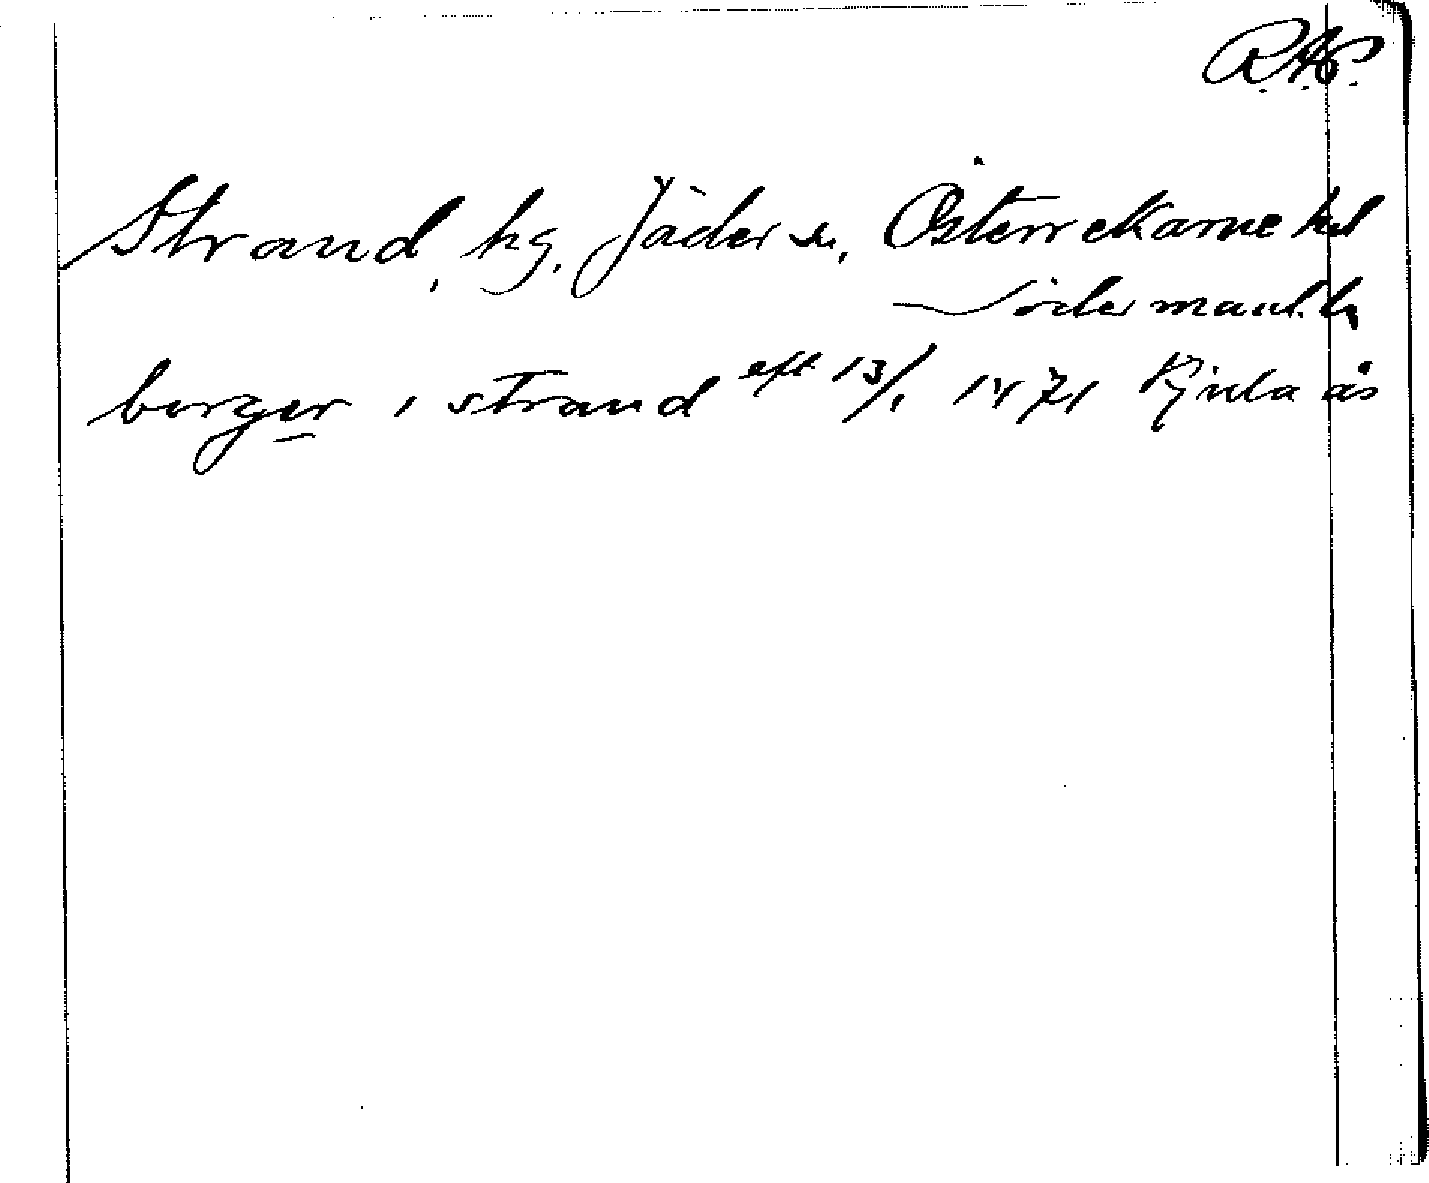 R.A.P.
Strand, hg, Jäder sn, Österrekarne hd
Södermanl. l.
berger i strand eft 13/1 1471 Kjula ås